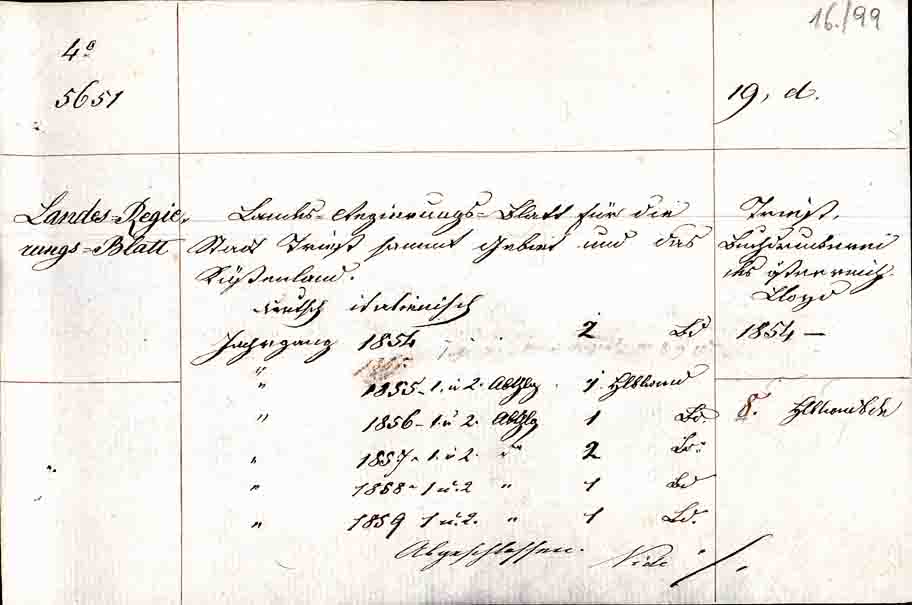 16./99
4°
5651
19, d.
Landes-Regie-
rungs-Blatt
Landes-Regierungs-Blatt für die
Stadt Triest sammt Gebiet und das
Küstenland.
deutsch italienisch
Jahrgang 1854 2 Bd
" 1855 - 1. u 2. Abthlg 1 Hlbband
" 1856 - 1. u 2. Abthlg 1 Bd.
" 1857 - 1. u 2. " 2 Bd.
" 1858 - 1 u. 2 " 1 Bd
" 1859 1 u. 2. " 1 Bd.
Abgeschlossen.
Vide ./.
Triest,
Buchdruckerei
des österreich.
Lloyd
1854 —
8. Hlbbände